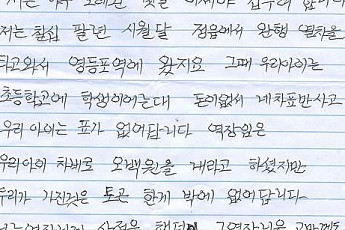 저는 칠십 팔년 시월달 정읍에서 완행 열차를
타고와서 영등포역에 왔지요 그때 우리아이는
초등학교에 학생이어군대 돈이없서 내차표만사고
우리 아이는 표가 없어답니다 역장님은
우리아이 차비로 오백원을 내라고 하셨지만
우리가 가진것은 토큰 한개 밖에 없어답니다
사정을